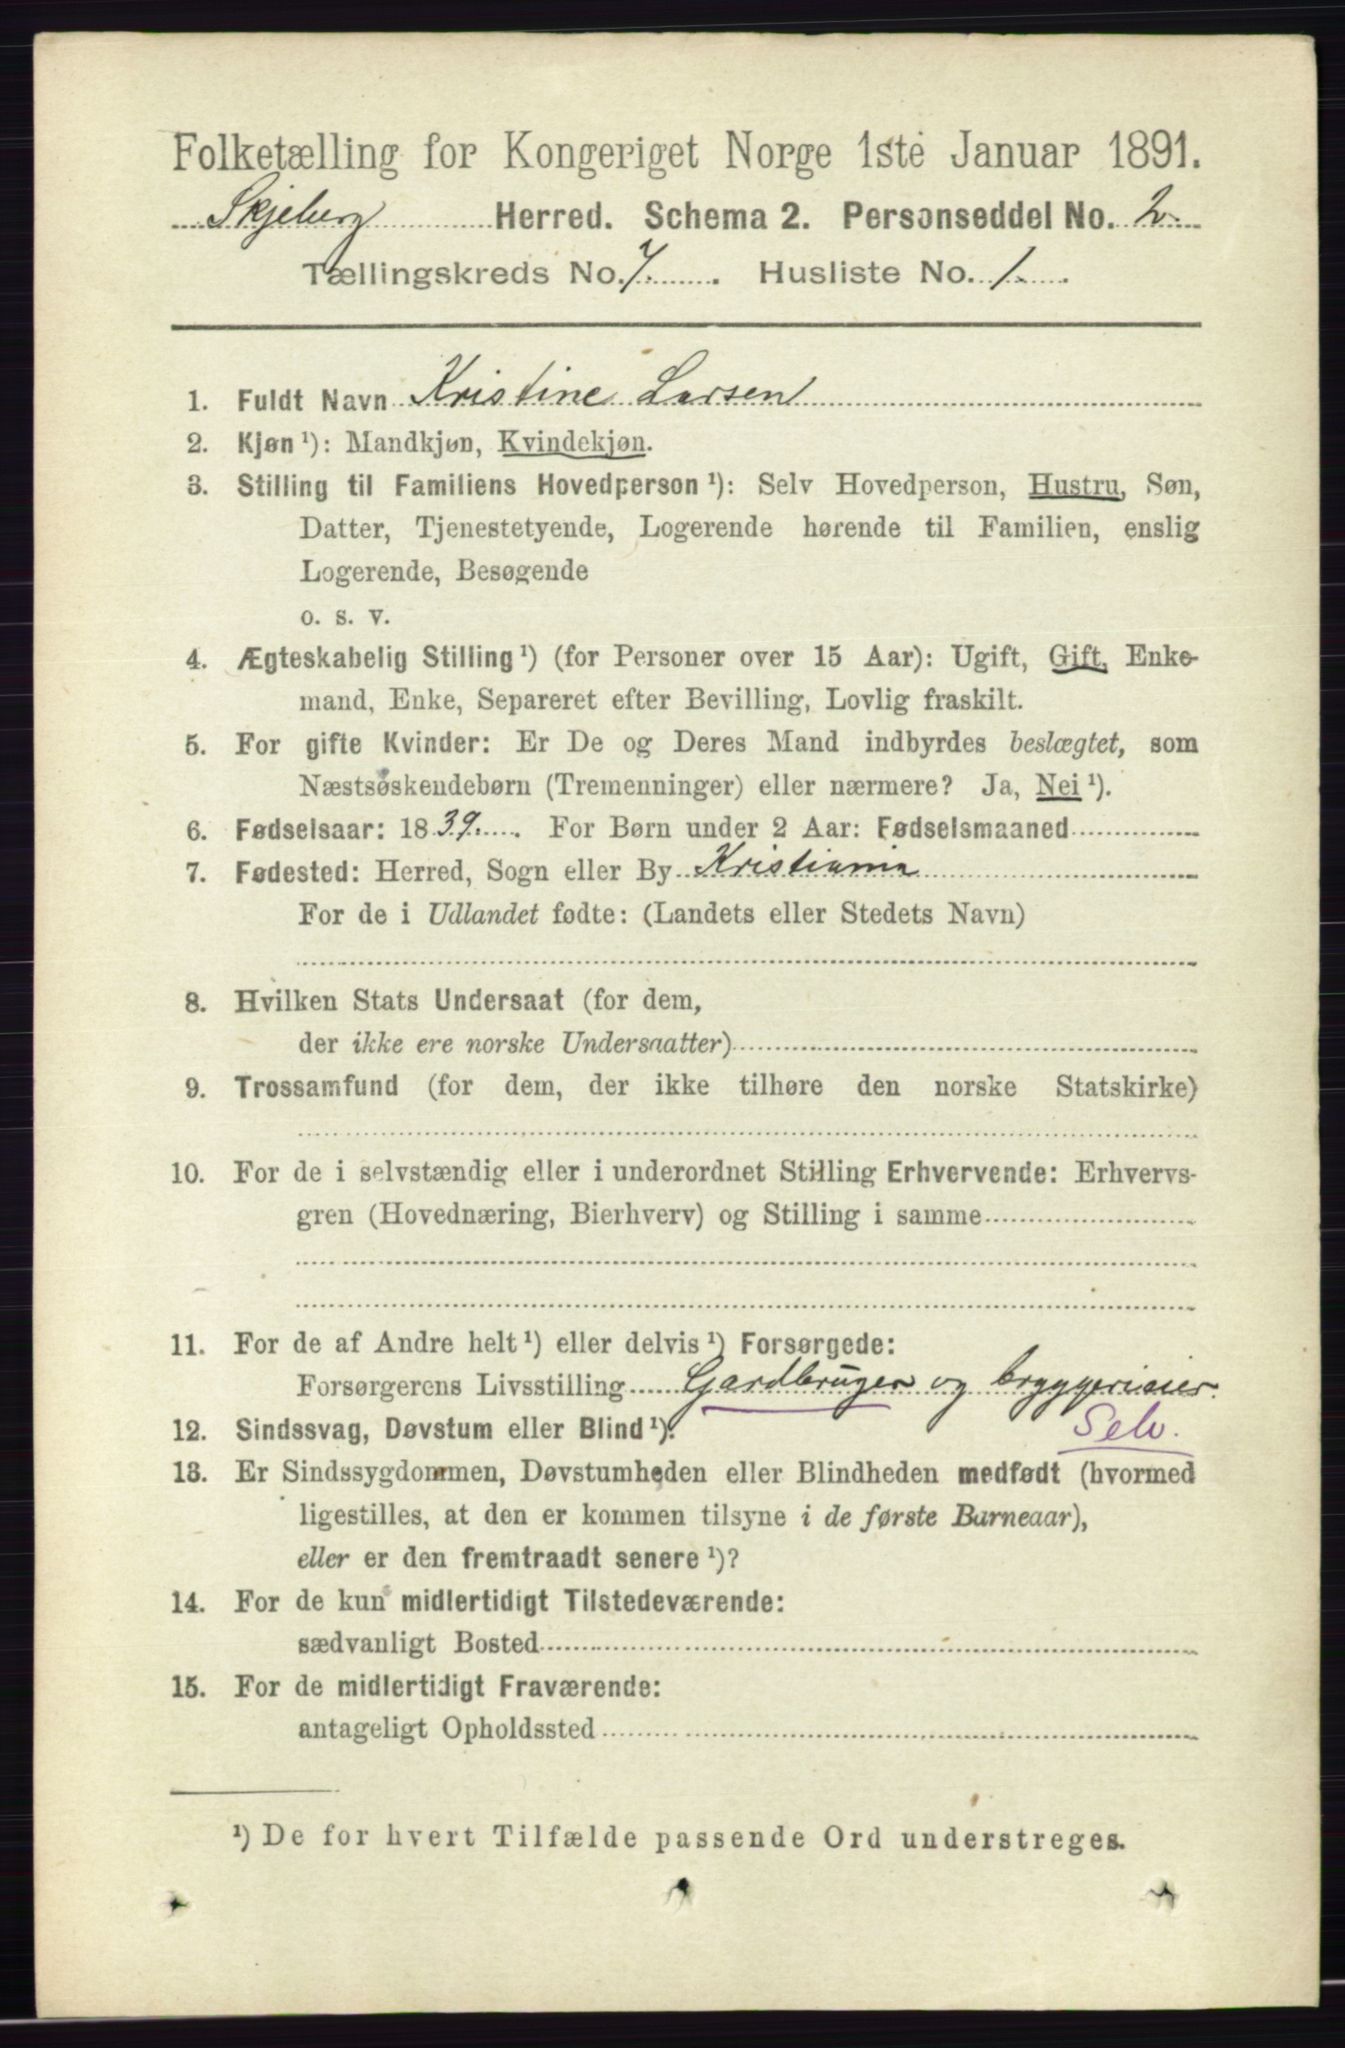 Folketælling for Kongeriget Norge 1ste Januar 1891.
Skjeberg Herred. Schema 2. Personseddel No. 2.
Tællingskreds No. 7. Husliste No. 1.
1. Fuldt Navn Kristine Larsen
2. Kjøn ¹): Mandkjøn, Kvindekjøn.
3. Stilling til Familiens Hovedperson ¹): Selv Hovedperson, Hustru, Søn,
Datter, Tjenestetyende, Logerende hørende til Familien, enslig
Logerende, Besøgende
o. s. v.
4. Ægteskabelig Stilling ¹) (for Personer over 15 Aar): Ugift, Gift, Enke-
mand, Enke, Separeret efter Bevilling, Lovlig fraskilt.
5. For gifte Kvinder: Er De og Deres Mand indbyrdes beslægtet, som
Næstsøskendebørn (Tremenninger) eller nærmere? Ja, Nei ¹).
6. Fødselsaar: 1839. For Børn under 2 Aar: Fødselsmaaned
7. Fødested: Herred, Sogn eller By Kristiania
For de i Udlandet fødte: (Landets eller Stedets Navn)
8. Hvilken Stats Undersaat (for dem,
der ikke ere norske Undersaatter)
9. Trossamfund (for dem, der ikke tilhøre den norske Statskirke)
10. For de i selvstændig eller i underordnet Stilling Erhvervende: Erhvervs-
gren (Hovednæring, Bierhverv) og Stilling i samme
11. For de af Andre helt ¹) eller delvis ¹) Forsørgede:
Forsørgerens Livsstilling Gardbruger og bryggerieier.
12. Sindssvag, Døvstum eller Blind ¹). Selv.
13. Er Sindssygdommen, Døvstumheden eller Blindheden medfødt (hvormed
ligestilles, at den er kommen tilsyne i de første Barneaar),
eller er den fremtraadt senere ¹)?
14. For de kun midlertidigt Tilstedeværende:
sædvanligt Bosted
15. For de midlertidigt Fraværende:
antageligt Opholdssted
¹) De for hvert Tilfælde passende Ord understreges.